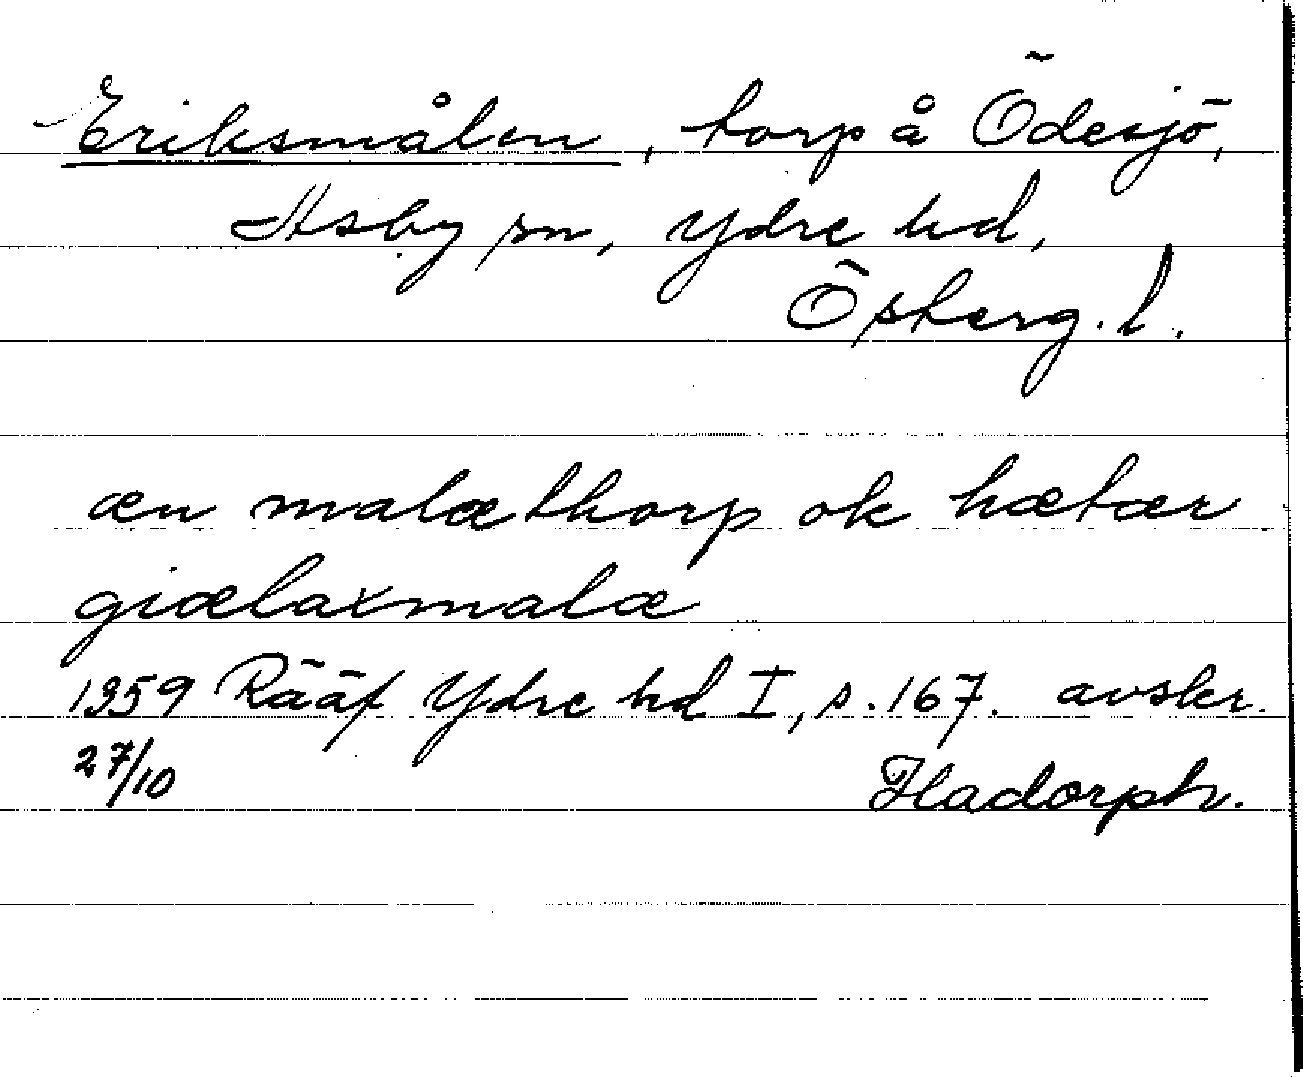 Eriksmålen, torp å Ödesjö,
Asby sn, Ydre hd,
Österg. l.
æn malæthorp ok hætær
giælaxmalæ
1359 Rääf Ydre hd I, s. 167. avskr.
27/10 Hadorph.